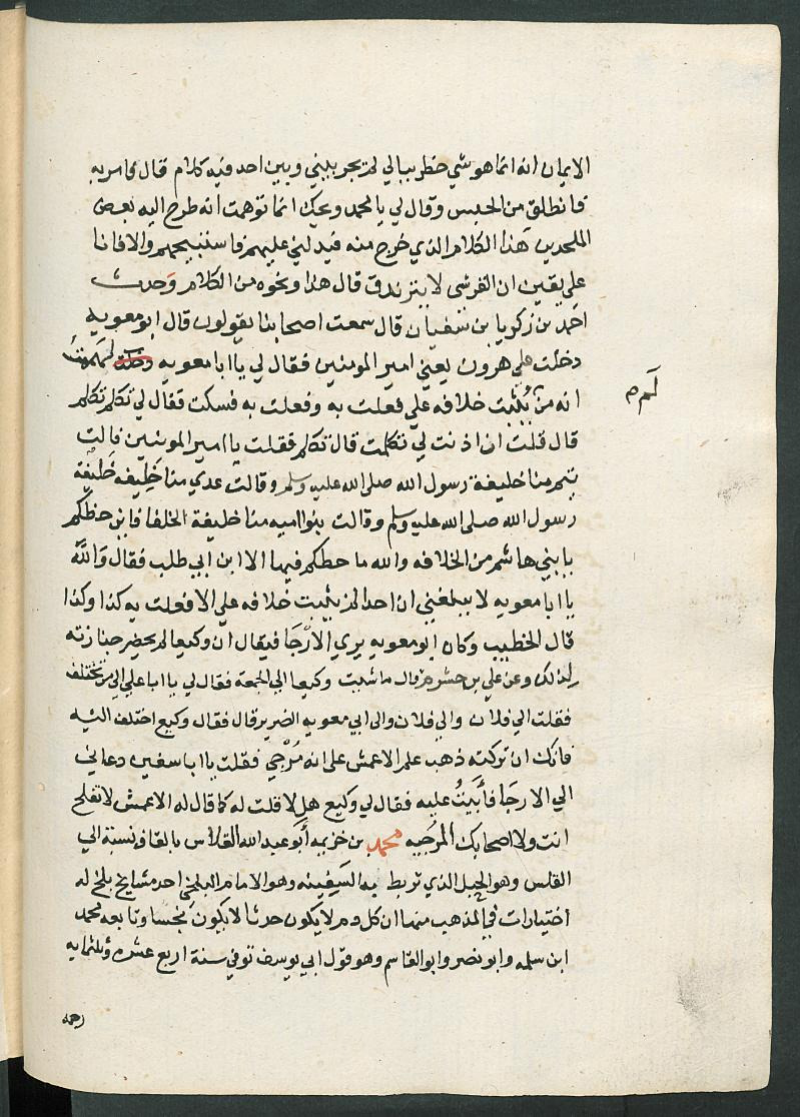 الايمان انه انما هو شي خطر ببالي لم يجر بيني وبين احد فيه كلام قال فامر به
فانطلق من الحبس وقال لي يا محمد ويحك انما توهمت انه طرح اليه بعض
الملحدين هذا الكلام الذي خرج منه فيدلني عليهم فاستبيحهم والا فانا
علي يقين ان القرشى لا يتزندق قال هذا ونحوه من الكلام وحدث
احمد بن زكريا بن سفيان قال سمعت اصحابنا يقولون قال ابو معويه
دخلت علي هرون يعني امير المومنين فقال لي يا ابا معويه هممت
انه من يثبت خلافه علي فعلت به وفعلت به فسكت فقال لي تكلم تكلم
قال قلت ان اذنت لي تكلمت قال تكلم فقلت يا امير المومنين قالت
تيم منا خليفة رسول الله صلى الله عليه وسلم وقالت عدي منا خليفه خليفة
رسول الله صلى الله عليه وسلم وقالت بنوا اميه منا خليفة الخلفا فاين حظكم
يا بني هاشم من الخلافه والله ما حظكم فيها الا ابن ابي طلب فقال والله
يا ابا معويه لا يبلغني ان احدا لم يثبت خلافه علي الا فعلت به كذا وكذا
قال الخطيب وكان ابو معويه يري الارجا فيقال ان وكيعا لم يحضر جنازته
لذلك وعن علي بن خشرم قال ماشيت وكيعا الي الجمعة فقال لي يا ابا علي الي من تختلف
فقلت الي فلان والي فلان والى ابي معويه الضرير قال فقال وكيع اختلف اليه
فانك ان تركته ذهب علم الاعمش على انه مرجي فقلت يا ابا سفين دعاني
الي الارجا فأبيت عليه فقال لي وكيع هلا قلت له كما قال له الاعمش لا تفلح
انت ولا اصحابك المرجيه محمد بن خزيمه أبو عبد الله القلاس بالقاف نسبة الي
القلس وهو الحبل الذي تربط به السفينه وهو الامام البلخي احد مشايخ بلخ له
اختيارات في المذهب منها ان كل دم لا يكون حدثا لا يكون نجسا وتابعه محمد
ابن سلمه وابو نصر وابو القاسم وهو قول ابي يوسف توفي سنة اربع عشره وثلثمايه
رحمه